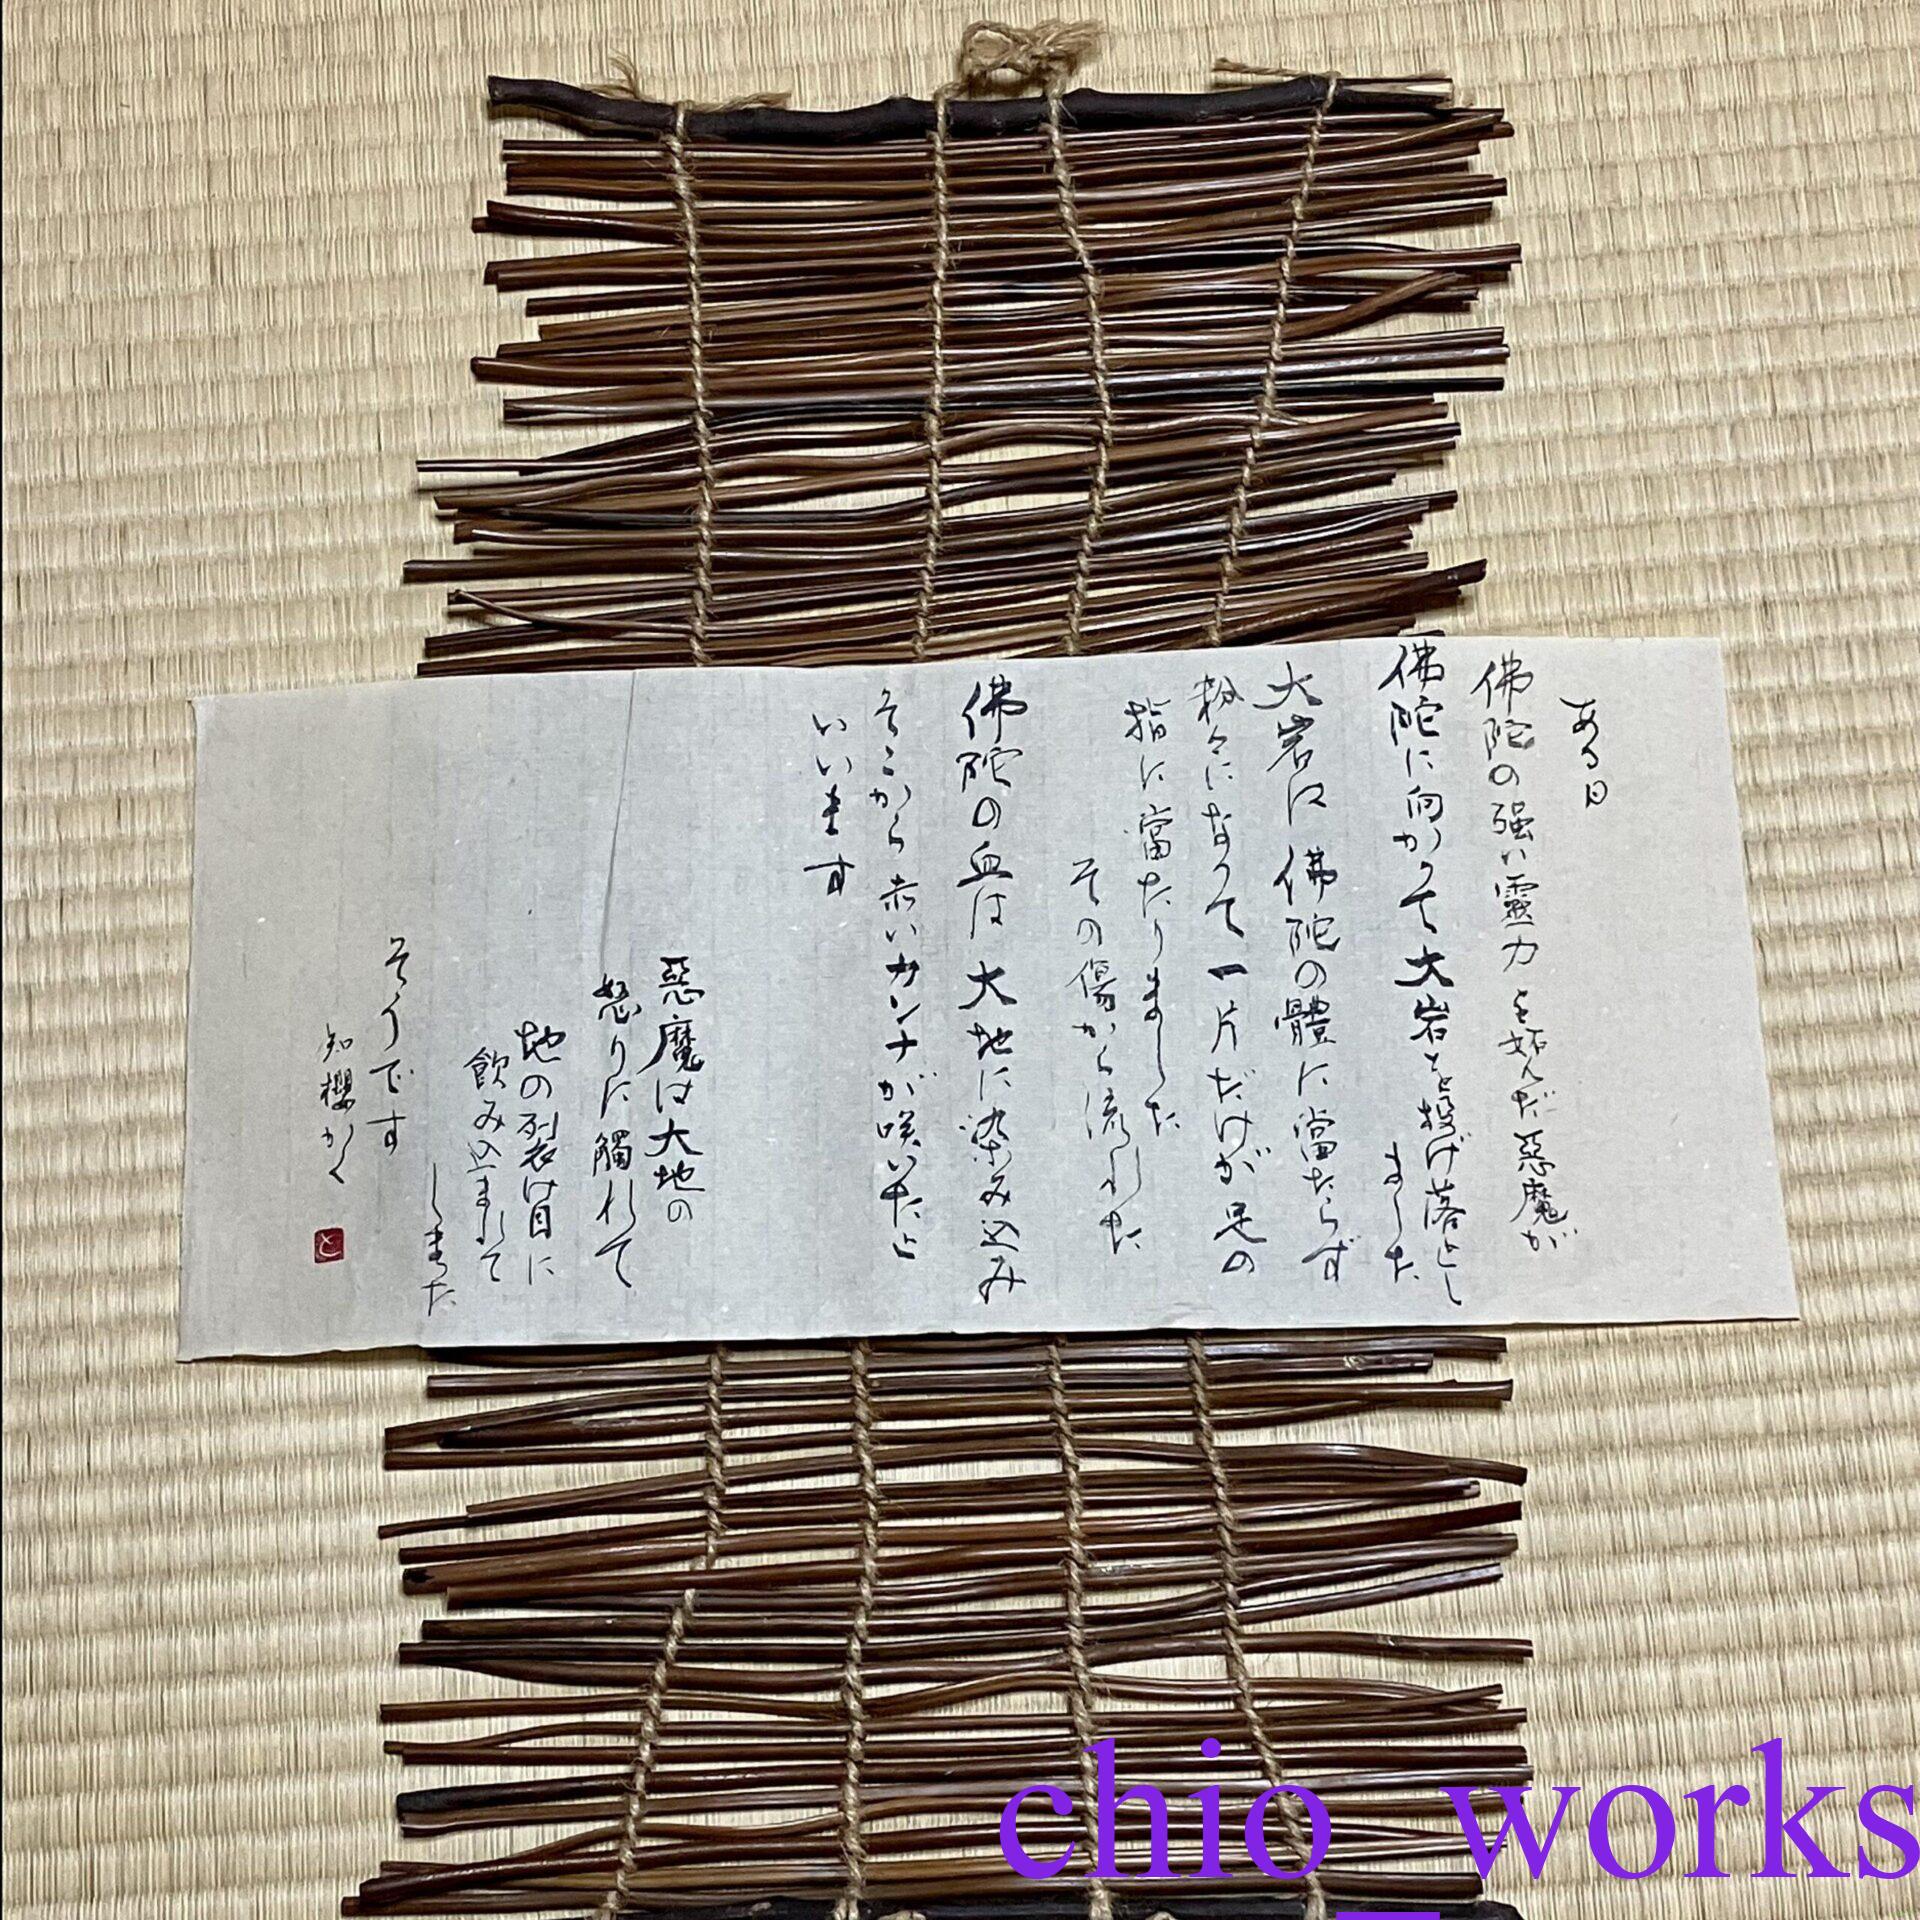 ある日
佛陀の强い靈力を妬んだ惡魔が
佛陀に向かって大岩を投げ落とし
ました
大岩は佛陀の體に當たらず
粉々になって一片だけが足の
指に當たりました
その傷から流れた
佛陀の血は大地に染み込み
そこから赤いカンナが咲いたと
いいます
惡魔は大地の
怒りに觸れて
地の裂け目に
飲み込まれて
しまった
そうです
知櫻かく
と
chio_works